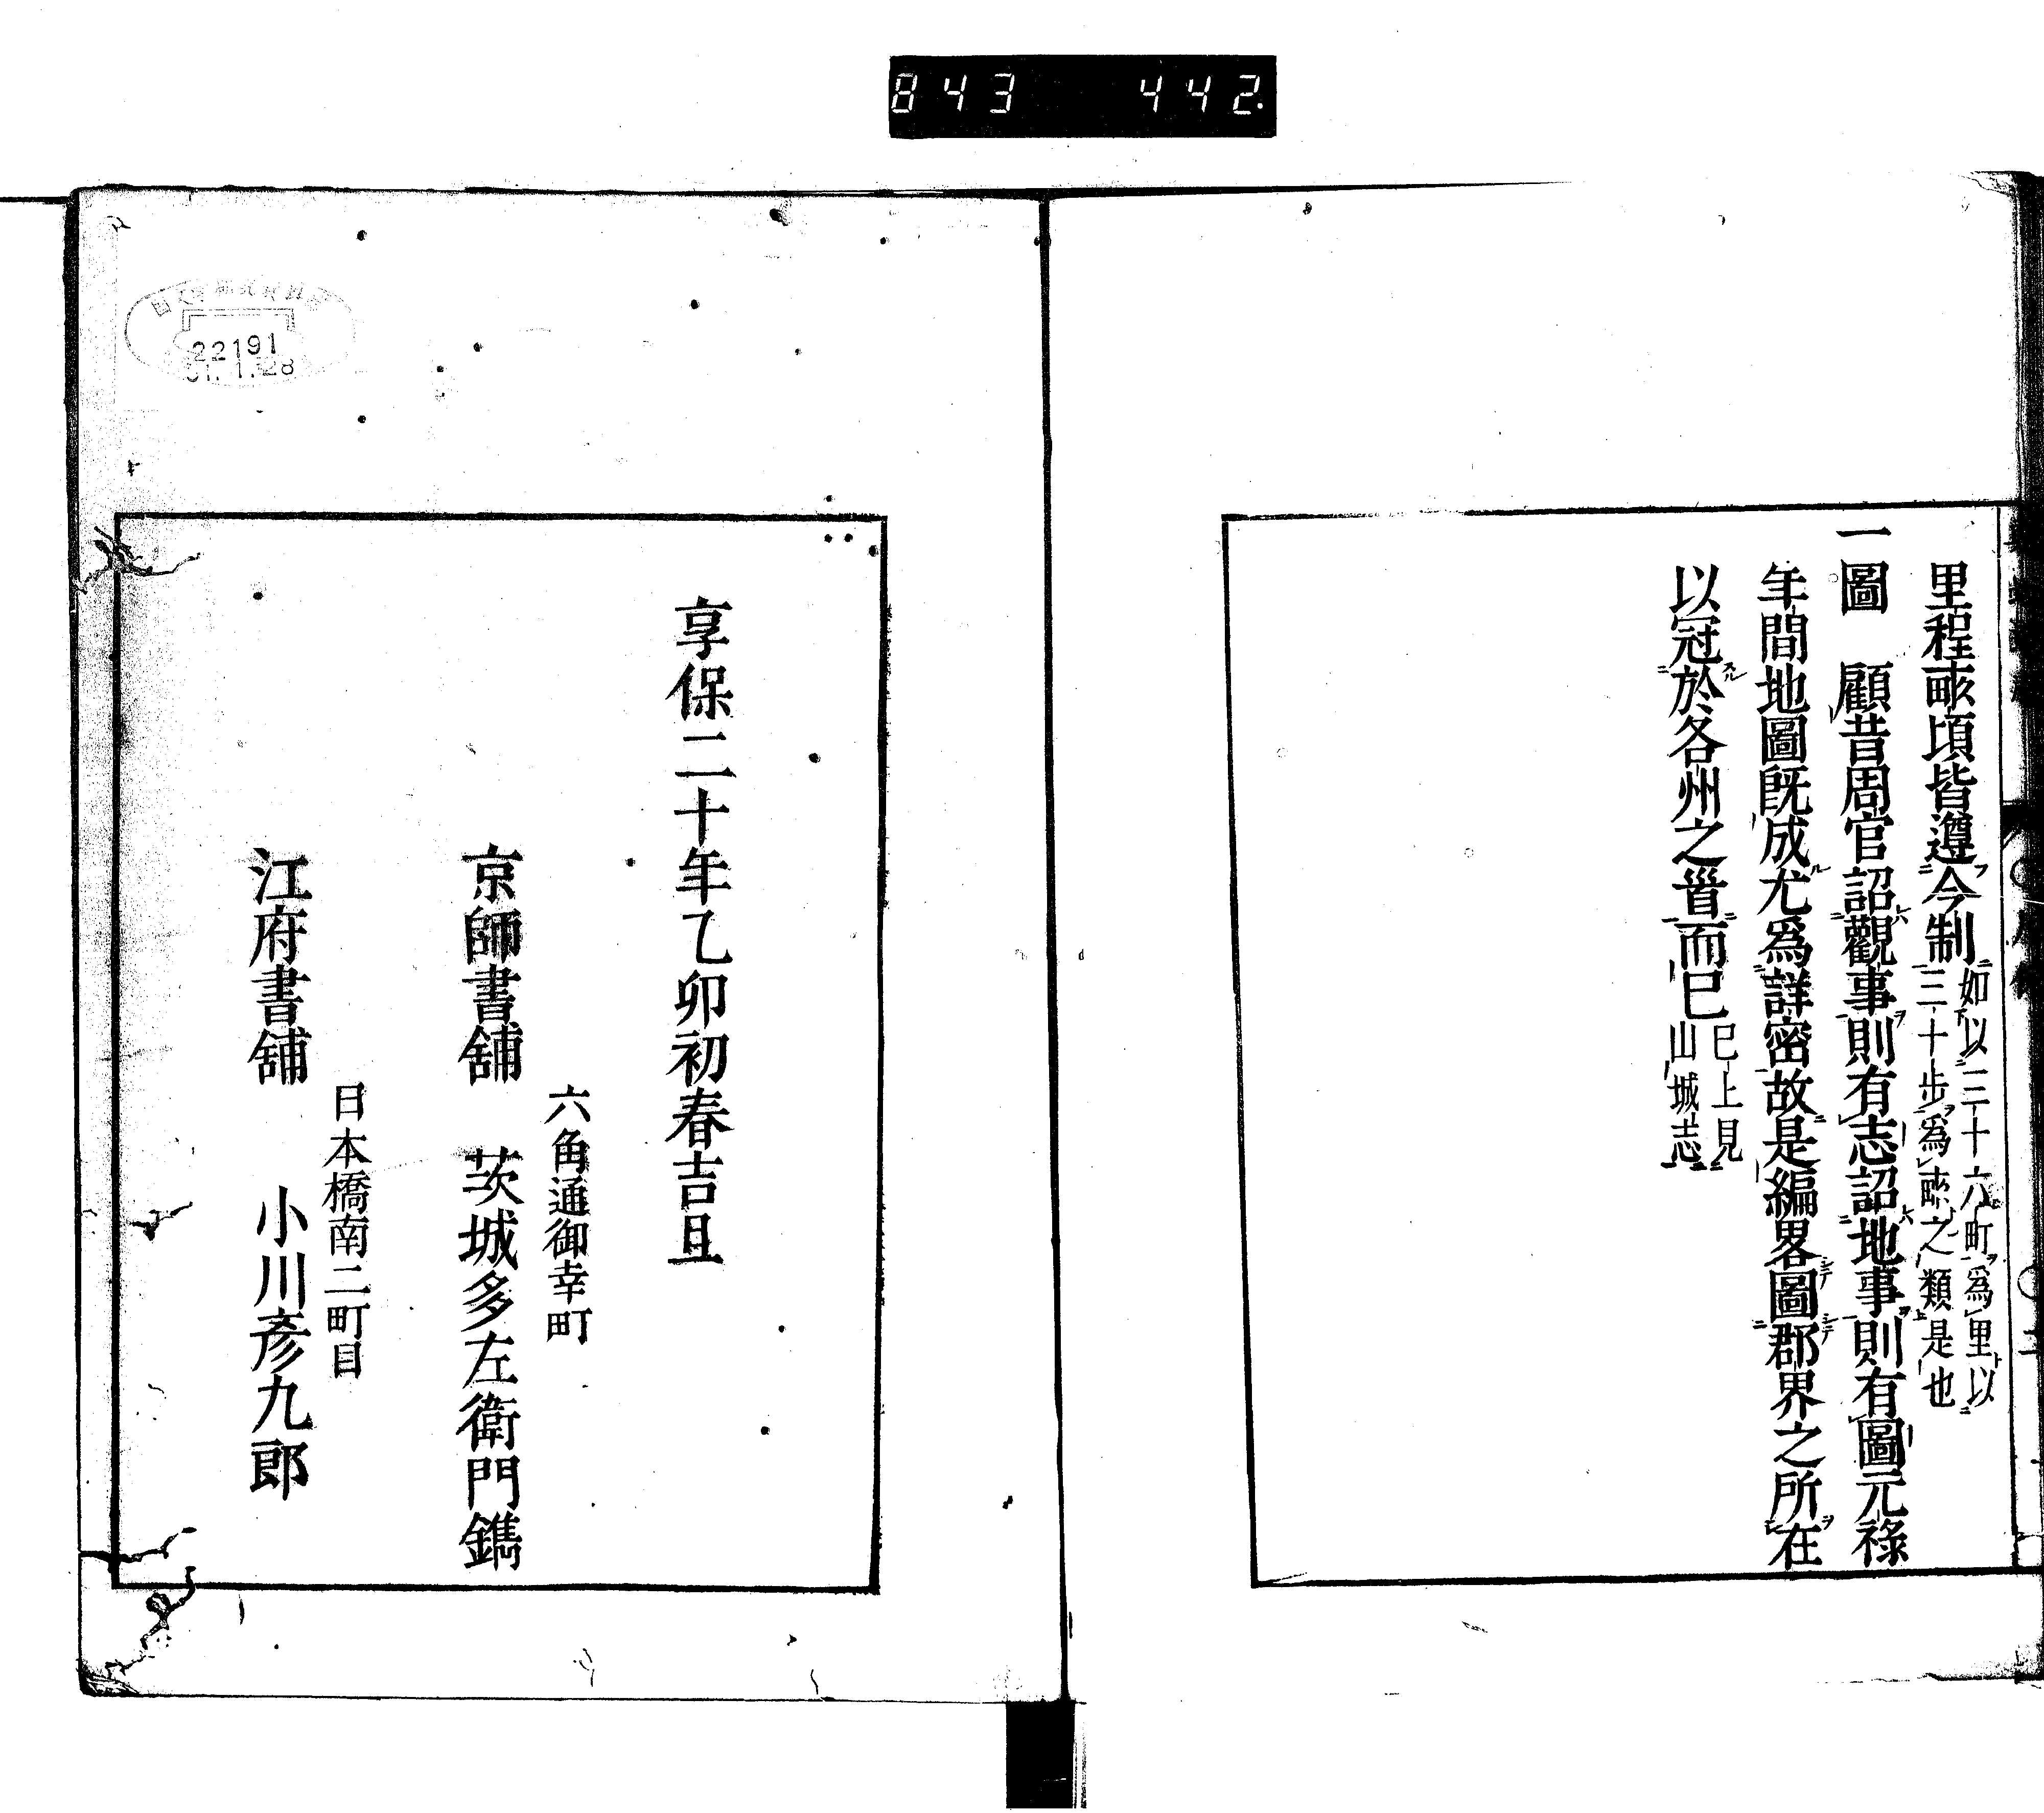 843 442.
里程畝頃皆遵今制如以三十六町爲里以
三十步爲畝之類是也
一圖 顧昔周官詔觀事則有志詔地事則有圖元祿
年間地圖既成尤爲詳密故是編畧圖郡界之所在
以冠於各州之首而已已上見
山城志
享保二十年乙卯初春吉旦
六角通御幸町
京師書舖 茨城多左衛門鐫
日本橋南二町目
江府書舖 小川彥九郎
22191